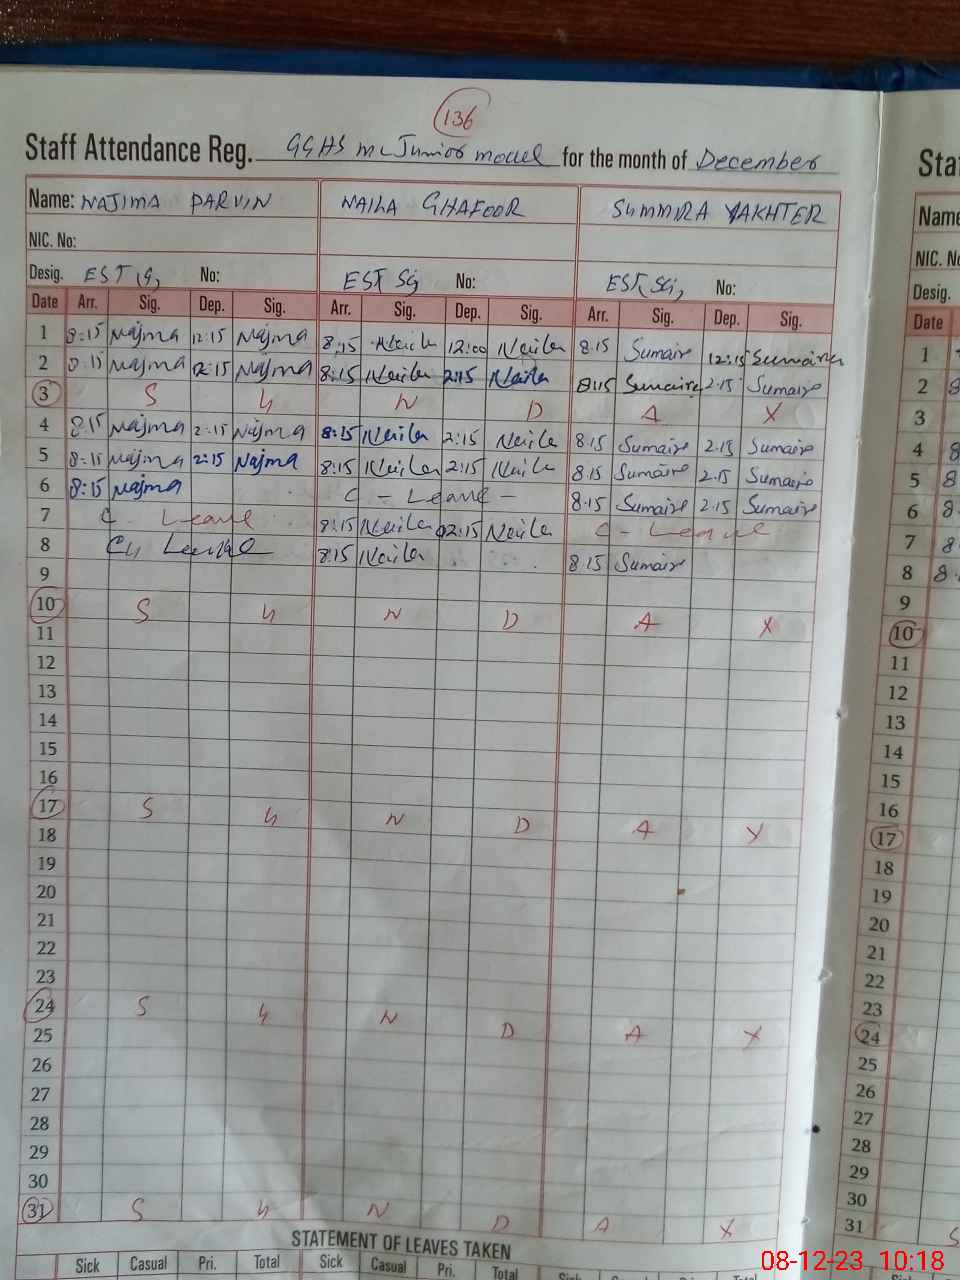 136
Staff Attendance Reg. GGHS mc Junior model for the month of December
Name: NAJIMA PARVIN NAILA GHAFOOR SUMMIRA YAKHTER
NIC. No:
Desig. EST (G) No: EST SG No: EST, SG, No:
Date Arr. Sig. Dep. Sig. Arr. Sig. Dep. Sig. Arr. Sig. Dep. Sig.
1 8:15 Najma 12:15 Najma 8:15 Naila 12:00 Naila 8.15 Sumaira 12:15 Sumaira
2 8:15 Najma 12:15 Najma 8:15 Naila 2:15 Naila 8:15 Sumaira 2.15 Sumaira
3 S U N D A Y
4 8:15 Najma 2:15 Najma 8:15 Naila 2:15 Naila 8.15 Sumaira 2.15 Sumaira
5 8:15 Najma 2:15 Najma 8:15 Naila 2:15 Naila 8.15 Sumaira 2.15 Sumaira
6 8:15 Najma C - Leave - 8.15 Sumaira 2.15 Sumaira
7 C - Leave 8:15 Naila 02:15 Naila C - Leave
8 Leave 8:15 Naila 8.15 Sumaira
9
10 S U N D A Y
11
12
13
14
15
16
17 S U N D A Y
18
19
20
21
22
23
24 S U N D A Y
25
26
27
28
29
30
31 S U N D A Y
STATEMENT OF LEAVES TAKEN
Sick Casual Pri. Total Sick Casual Pri. Total
Sta
Name
NIC. No
Desig.
Date
1
2 8
3
4 8
5 8
6 8.
7 8
8 8.
9
10
11
12
13
14
15
16
17
18
19
20
21
22
23
24
25
26
27
28
29
30
31 S
08-12-23 10:18